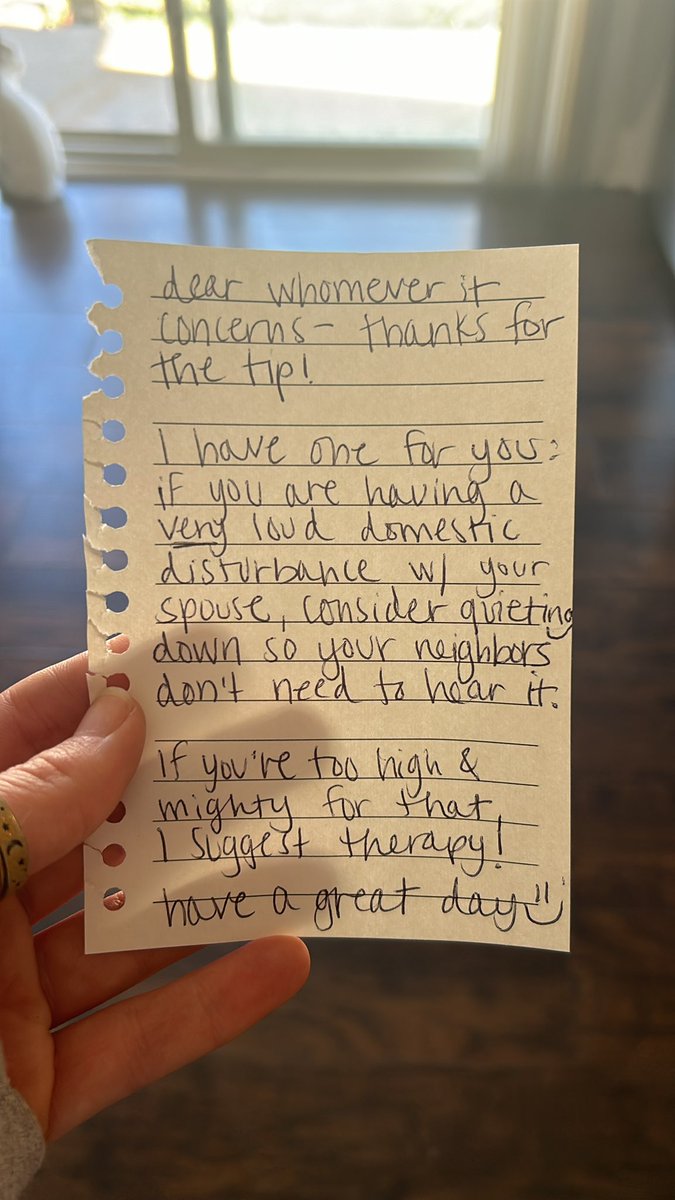 dear whomever it
concerns- thanks for
the tip!
I have one for you:
if you are having a
very loud domestic
disturbance w/ your
spouse, consider quieting
down so your neighbors
don't need to hear it.
If you're too high &
mighty for that,
I suggest therapy!
have a great day :)